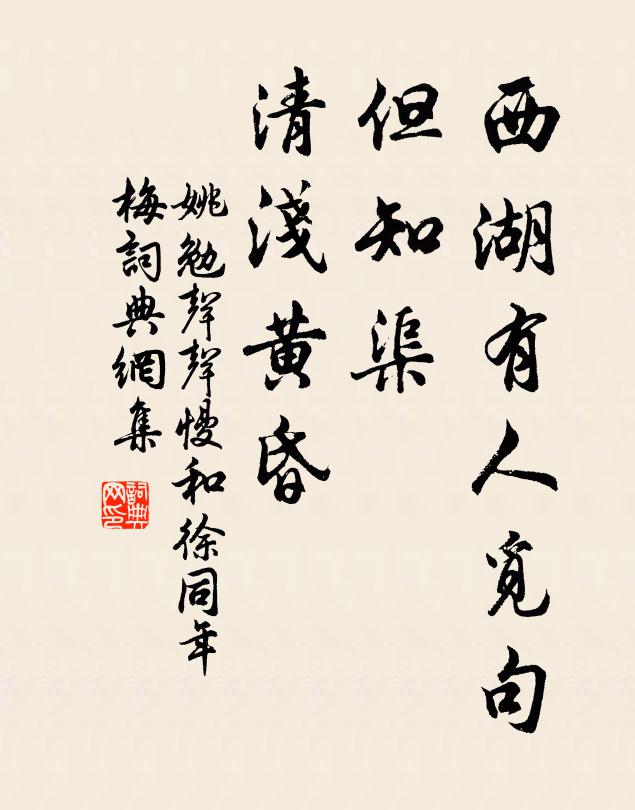 西湖有人覓句
但知渠
清淺黄昏
姚勉聲聲慢和徐同年
梅詞典網集
詞典
网印